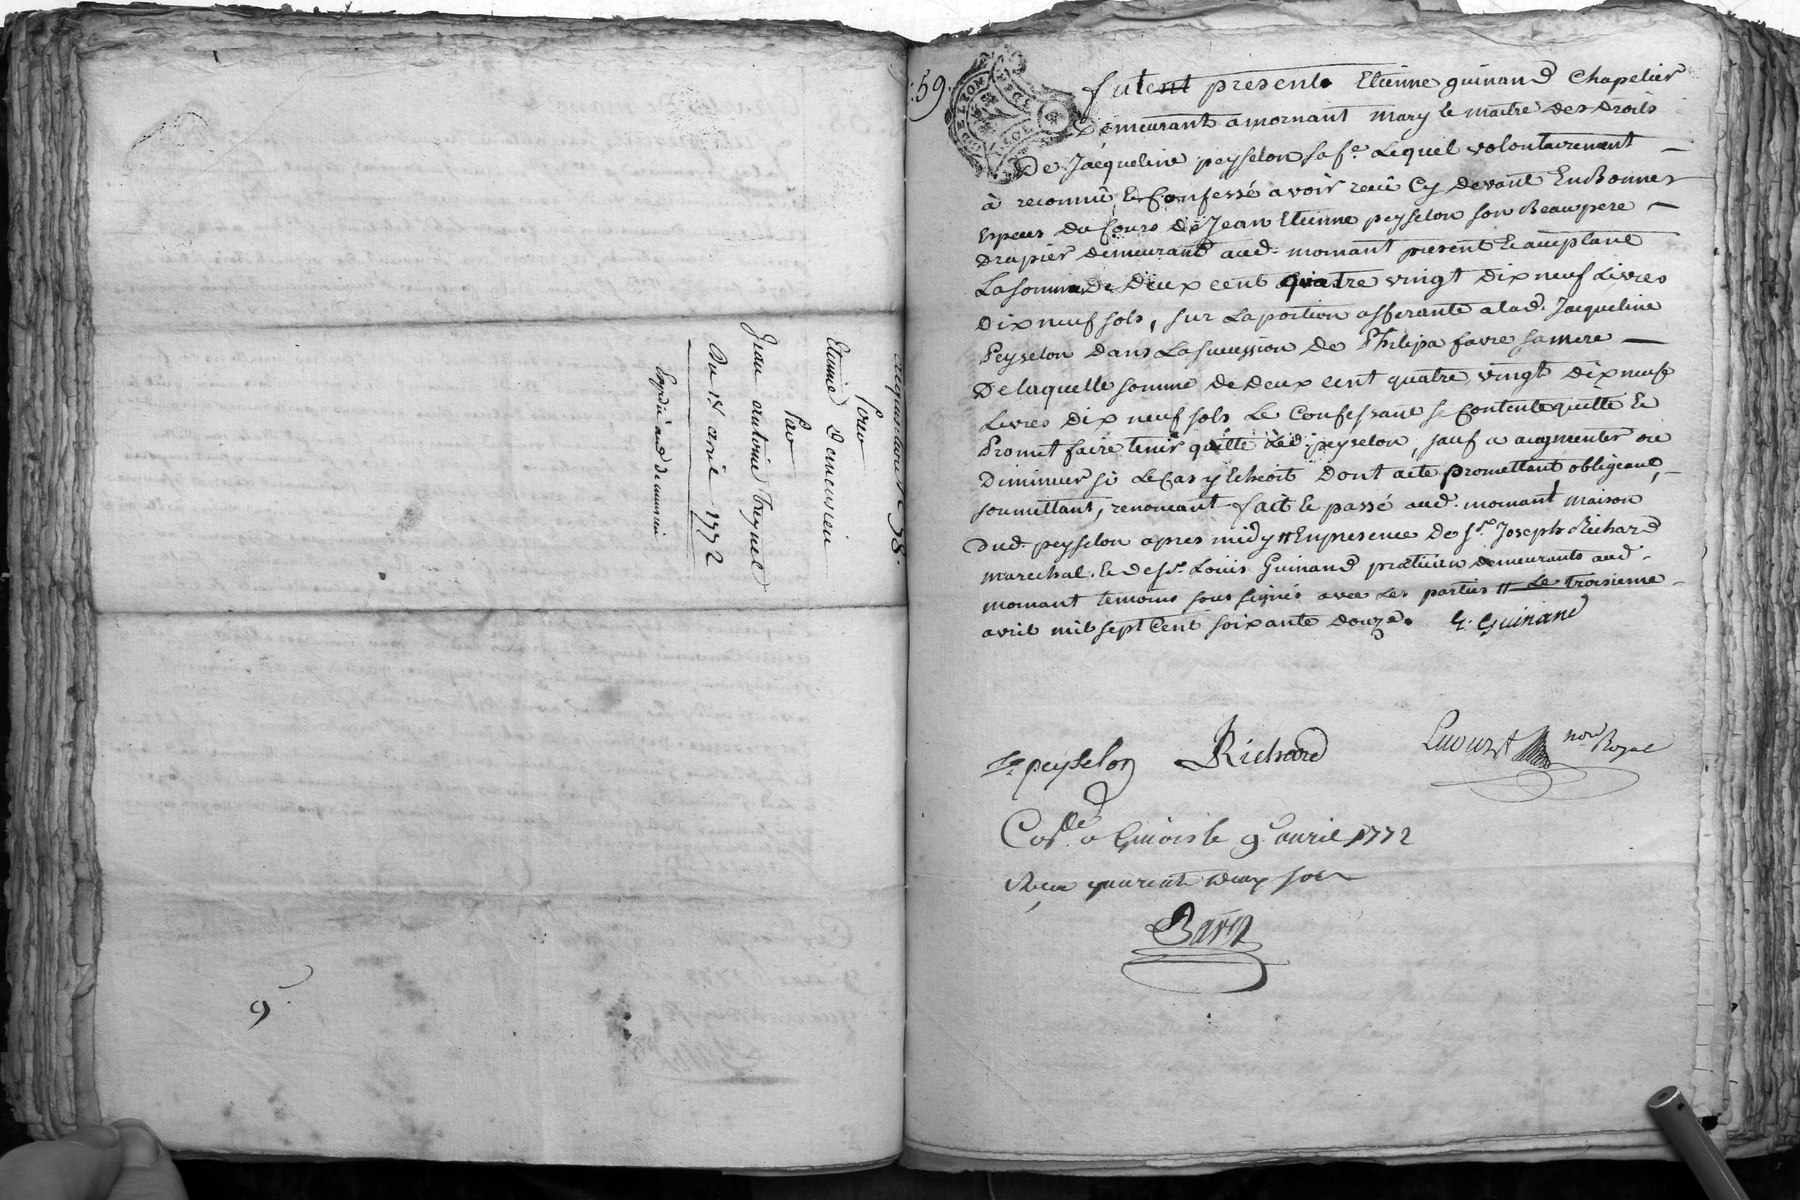 pour
Etienne Demeurieu
Par
Jean antoine
Du 14 avril 1772
Expedié aud Demeurieu
9
59.
DE LYON
futent present Etienne guinand Chapelier
Demeurant a mornant mary le maitre des Droits
De Jacqueline peyselon sa fe. Lequel volontairement —
à reconnû Et Confessé avoir receu Cy devant En Bonnes
Especes du Cours de Jean Etienne peyselon son Beaupere —
Drapier demeurant aud. mornant present Et acceptant
La Somme De Deux cent quatre vingt Dix neuf Livres
Dix neuf sols, sur La portion afferante a lad. Jacqueline
Peyselon dans La succession de Philipa favre sa mere —
De laquelle somme de Deux cent quatre vingt Dix neuf
Livres Dix neuf sols Le Confessant se Contente quitte Et
Promet faire tenir quitte Led. peyselon, sauf a augmenter ou
Diminuer si Le Cas y Echeoit Dont acte promettant obligeant, —
soumettant, renonceant fait Et passé aud. mornant maison
Dud. peyselon apres midy En presence de sr. Joseph Richard
marechal. Et de sr. Louis Guinand praticien demeurants aud.
mornant temoins sous signés avec Les parties Le troisieme —
avril mil sept Cent soixante Douze. E. Guinand
peyselon Richard nore Royal
Coslé a le 9 avril 1772
Receu quarente deux sols